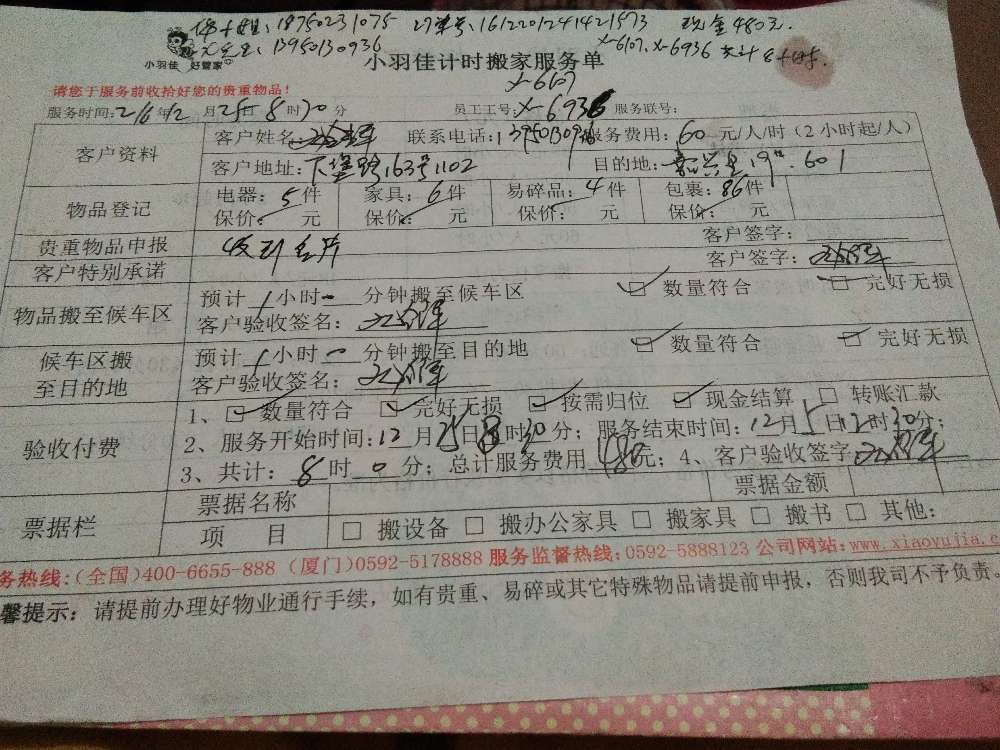 小姐：18750231075 订单号：1612201241421573 现金480元．
先生：13950130936 X-6107．X-6936 共计8小时．
小羽佳 好管家
小羽佳计时搬家服务单
X-6107
请您于服务前收拾好您的贵重物品！
服务时间：216年12月25日8时30分 员工工号：X-6936 服务联号：
客户资料 客户姓名： 联系电话：13950130936 服务费用：60元/人/时（2小时起/人）
客户地址：下堡路163号1102 目的地： 19 601
物品登记 电器：5件 家具：6件 易碎品：4件 包裹：86件
保价： 元 保价： 元 保价： 元 保价： 元
贵重物品申报 客户签字：
客户特别承诺 客户签字：
物品搬至候车区 预计1小时 分钟搬至候车区 数量符合 完好无损
客户验收签名：
候车区搬至目的地 预计1小时 分钟搬至目的地 数量符合 完好无损
客户验收签名：
验收付费 1、数量符合 完好无损 按需归位 现金结算 □ 转账汇款
2、服务开始时间：12月25日8时30分；服务结束时间：12月5日12时30分；
3、共计：8时0分；总计服务费用480元；4、客户验收签字
票据栏 票据名称 票据金额
项 目 □ 搬设备 □ 搬办公家具 □ 搬家具 □ 搬书 □ 其他：
务热线：(全国)400-6655-888 (厦门)0592-5178888 服务监督热线：0592-5888123 公司网站：www.xiaoyujia.c
馨提示：请提前办理好物业通行手续，如有贵重、易碎或其它特殊物品请提前申报，否则我司不予负责。